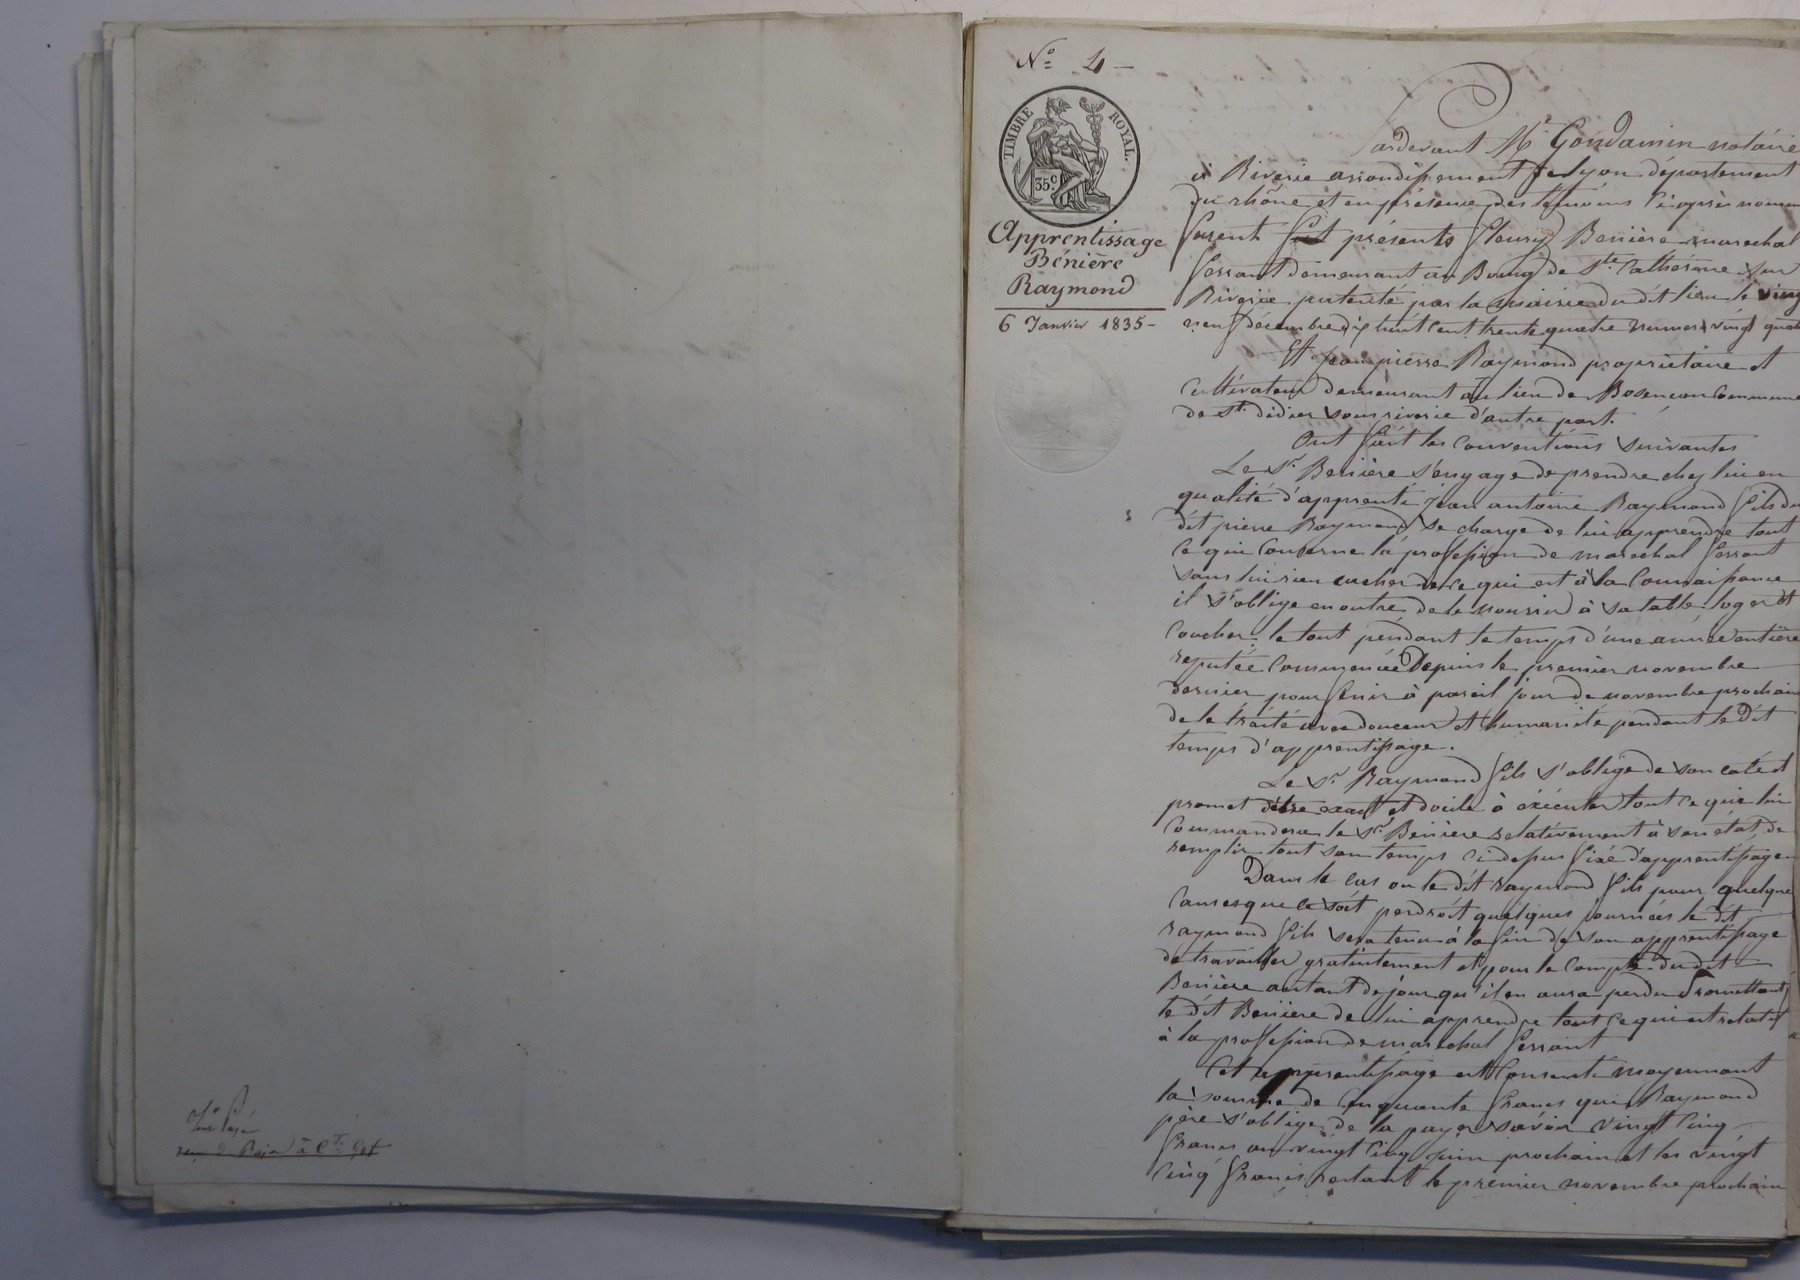 N° 4 —
TIMBRE ROYAL.
35 c.
Apprentissage
Bénière
Raymond
6 Janvier 1835 -
Pardevant Me Gondamin notaire
à Riverie arrondissement de Lyon département
du rhône et en présence des témoins ci après nommé
furent présents fleury Benière marechal
ferrant demeurant au Bourg de Ste Catherine sur
Riverie patenté par la mairie du dit lieu le ving
neuf décembre dix huit cent trente quatre numero vingt quat
Et Jean pierre Raymond propriétaire et
cultivateur demeurant au lieu de Bosençon Commune
de St didier sous riverie d'autre part.
Ont fait les Conventions suivantes
Le Sr Benière s'engage de prendre chez lui en
qualité d'apprenti Jean antoine Raymond fils du
dit pierre Raymond se charge de lui apprendre tout
ce qui Concerne la profession de marechal ferrant
sans lui rien cacher de ce qui est à sa Connaissance
il s'oblige en outre de le nourrir à sa table loger et
Coucher le tout pendant le temps d'une année entière
reputée Commencée Depuis le premier novembre
dernier pour finir à pareil jour de novembre prochain
de le traité avec douceur et humanité pendant le dit
temps d'apprentissage.
Le Sr Raymond fils s'oblige de son coté et
promet d'être exact et docile à exécuter tout ce que lui
Commandera le Sr Benière relativement à son état, de
remplir tout son temps ci dessus fixé d'apprentissage
Dans le cas ou le dit raymond fils pour quelque
Causes que ce soit perdroit quelques journées le dit
raymond fils sera tenu à la fin de son apprentissage
de travailler gratuitement et pour le Compte du dit
Benière autant de jour qu'il en aura perdu Promettant
le dit Benière de lui apprendre tout ce qui est relatif
à la profession de marechal ferrant
Cet apprentissage est Consenti moyennant
la somme de Cinquante francs que Raymond
père s'oblige de la payer savoir vingt Cinq
francs au vingt Cinq juin prochain et les vingt
Cinq francs restant le premier novembre prochain